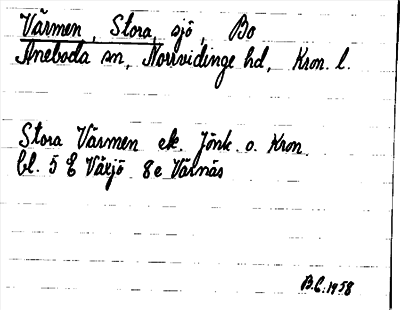 Värmen, Stora, sjö, Bo
Aneboda sn, Norrvidinge hd, Kron. l.
Stora Värmen ek. Jönk. o. Kron.
bl. 5 E Växjö 8e Värnäs
B.L. 1958